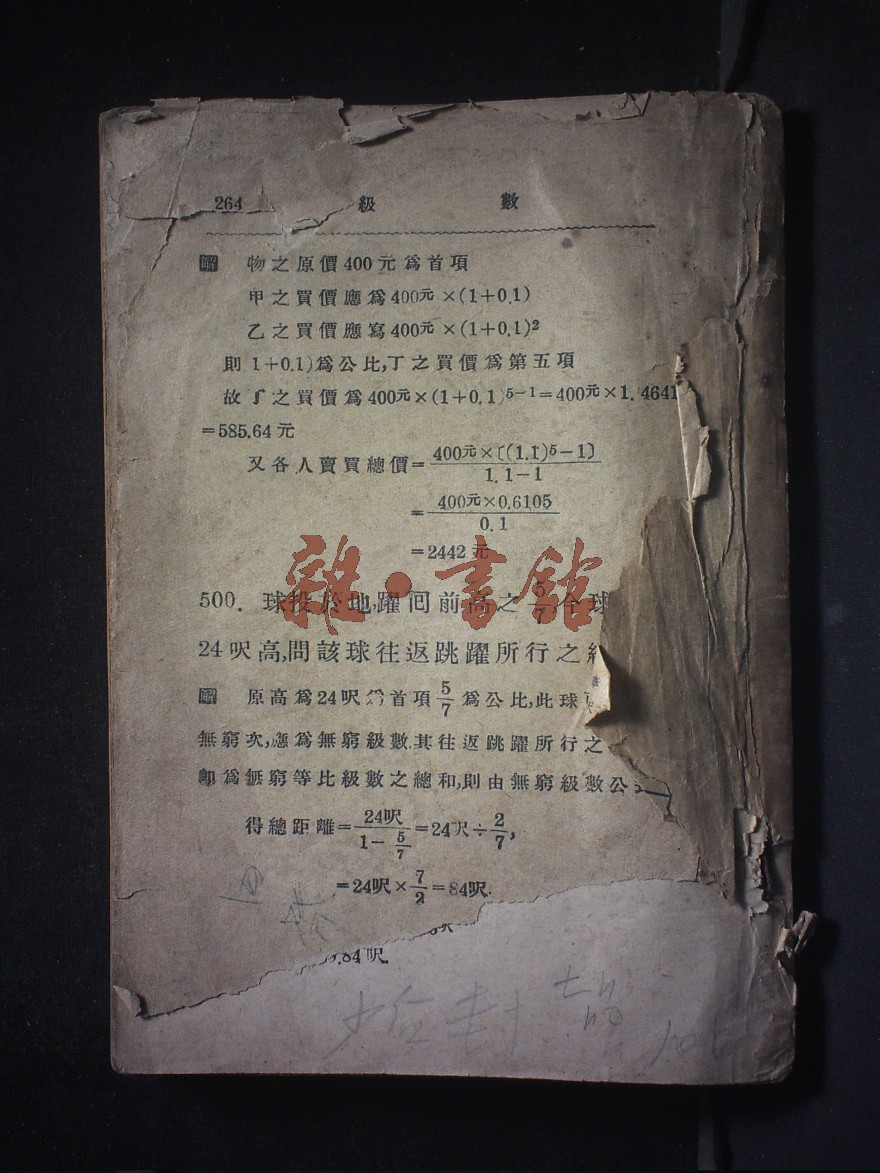 264 級 數
解 物之原價400元爲首項
甲之買價應爲400元×(1+0.1)
乙之買價應寫400元×(1+0.1)²
則 1+0.1)爲公比,丁之買價爲第五項
故丁之買價爲400元×(1+0.1)⁵⁻¹=400元×1.4641
=585.64元
又各人賣買總價=400元×〔(1.1)⁵−1〕/1.1−1
=400元×0.6105/0.1
=2442元
雜·書館
500. 球投於地,躍回前高之5/7 今球
24呎高,問該球往返跳躍所行之
解 原高爲24呎爲首項5/7爲公比,此球
無窮次,應爲無窮級數.其往返跳躍所行之
卽爲無窮等比級數之總和,則由無窮級數公
得總距離=24呎/1−5/7=24呎÷2/7,
=24呎×7/2=84呎.
.84呎.